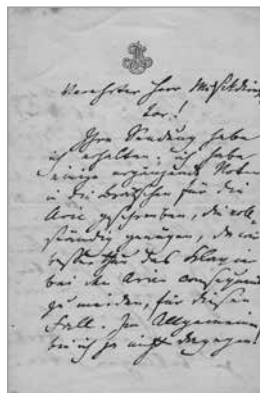 Verehrter Herr Musikdirek-
tor!
Ihre Sendung habe
ich erhalten; ich habe
einige ergänzende Noten
in die Bratschen für die
Arie geschrieben, die voll-
ständig genügen, da wir
das Clavier
bei den Arien consequent
zu meiden, für diesen
Fall. Im Allgemeinen
bin ich ja nicht dagegen!